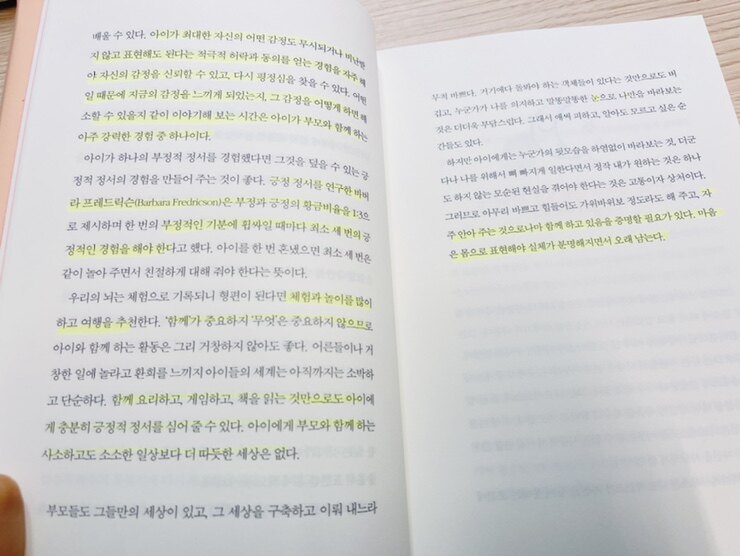 배울 수 있다. 아이가 최대한 자신의 어떤 감정도 무시되거나 비난받
지 않고 표현해도 된다는 적극적 허락과 동의를 얻는 경험을 자주 해
야 자신의 감정을 신뢰할 수 있고, 다시 평정심을 찾을 수 있다. 어떤
일 때문에 지금의 감정을 느끼게 되었는지, 그 감정을 어떻게 하면 해
소할 수 있을지 같이 이야기해 보는 시간은 아이가 부모와 함께 하는
아주 강력한 경험 중 하나이다.
아이가 하나의 부정적 정서를 경험했다면 그것을 덮을 수 있는 긍
정적 정서의 경험을 만들어 주는 것이 좋다. 긍정 정서를 연구한 바버
라 프레드릭슨(Barbara Fredricson)은 부정과 긍정의 황금비율을 1:3으
로 제시하며 한 번의 부정적인 기분에 휩싸일 때마다 최소 세 번의 긍
정적인 경험을 해야 한다고 했다. 아이를 한 번 혼냈으면 최소 세 번은
같이 놀아 주면서 친절하게 대해 줘야 한다는 뜻이다.
우리의 뇌는 체험으로 기록되니 형편이 된다면 체험과 놀이를 많이
하고 여행을 추천한다. '함께'가 중요하지 '무엇'은 중요하지 않으므로
아이와 함께 하는 활동은 그리 거창하지 않아도 좋다. 어른들이나 거
창한 일에 놀라고 환희를 느끼지 아이들의 세계는 아직까지는 소박하
고 단순하다. 함께 요리하고, 게임하고, 책을 읽는 것만으로도 아이에
게 충분히 긍정적 정서를 심어 줄 수 있다. 아이에게 부모와 함께 하는
사소하고도 소소한 일상보다 더 따듯한 세상은 없다.
부모들도 그들만의 세상이 있고, 그 세상을 구축하고 이뤄 내느라
무척 바쁘다. 거기에다 돌봐야 하는 객체들이 있다는 것만으로도 버
겁고, 누군가가 나를 의지하고 말똥말똥한 눈으로 나만을 바라보는
것은 더더욱 부담스럽다. 그래서 애써 피하고, 알아도 모르고 싶은 순
간들도 있다.
하지만 아이에게는 누군가의 뒷모습을 하염없이 바라보는 것, 더군
다나 나를 위해서 뼈 빠지게 일한다면서 정작 내가 원하는 것은 하나
도 하지 않는 모순된 현실을 겪어야 한다는 것은 고통이자 상처이다.
그러므로 아무리 바쁘고 힘들어도 가위바위보 정도라도 해 주고, 자
주 안아 주는 것으로나마 함께 하고 있음을 증명할 필요가 있다. 마음
은 몸으로 표현해야 실체가 분명해지면서 오래 남는다.